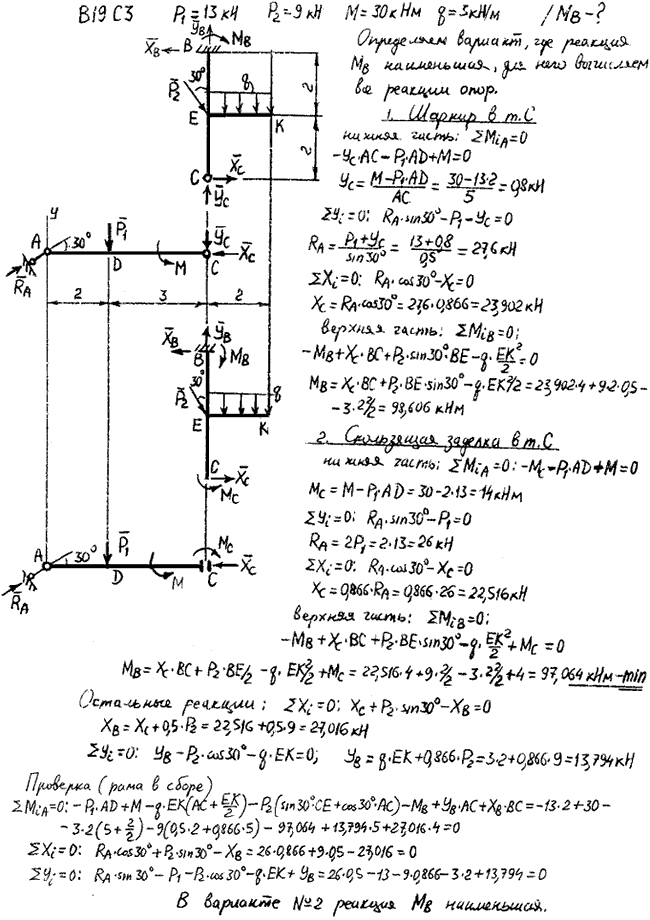 В19 С3 P₁=13 кН P₂=9 кН M=30 кНм q=3 кН/м /M_B-?
Определяем вариант, где реакция
M_B наименьшая, для него вычисляем
все реакции опор.
Y̅_B
X̅_B
B
M_B
30°
P̅₂
q
E
K
2
2
C
X̅_C
Y̅_C
y
A
30°
P̅₁
Y̅_C
X̅_C
R̅_A
D
M
C
2
3
2
1. Шарнир в т.С
нижняя часть: ΣM_iA=0
-Y_C·AC-P₁·AD+M=0
Y_C=(M-P₁·AD)/AC=(30-13·2)/5=0,8кН
ΣY_i=0: R_A·sin30°-P₁-Y_C=0
R_A=(P₁+Y_C)/sin30°=(13+0,8)/0,5=27,6 кН
ΣX_i=0: R_A·cos30°-X_C=0
X_C=R_A·cos30°=27,6·0,866=23,902 кН
верхняя часть: ΣM_iB=0;
-M_B+X_C·BC+P₂·sin30°·BE-q·EK²/2=0
M_B=X_C·BC+P₂·BE·sin30°-q·EK²/2=23,902·4+9·2·0,5-
-3·2²/2=98,606 кНм
Y̅_B
X̅_B
B
M_B
30°
P̅₂
q
E
K
C
X̅_C
M_C
2. Скользящая заделка в т.С
нижняя часть: ΣM_iA=0: -M_C-P₁·AD+M=0
M_C=M-P₁·AD=30-2·13=14кНм
ΣY_i=0: R_A·sin30°-P₁=0
R_A=2P₁=2·13=26 кН
ΣX_i=0: R_A·cos30°-X_C=0
X_C=0,866·R_A=0,866·26=22,516кН
A
30°
P̅₁
M_C
X̅_C
R̅_A
D
M
C
верхняя часть: ΣM_iB=0;
-M_B+X_C·BC+P₂·BE·sin30°-q·EK²/2+M_C=0
M_B=X_C·BC+P₂·BE/2-q·EK²/2+M_C=22,516·4+9·2/2-3·2²/2+4=97,064 кНм-min
Остальные реакции: ΣX_i=0: X_C+P₂·sin30°-X_B=0
X_B=X_C+0,5·P₂=22,516+0,5·9=27,016 кН
ΣY_i=0: Y_B-P₂·cos30°-q·EK=0; Y_B=q·EK+0,866·P₂=3·2+0,866·9=13,794кН
Проверка (рама в сборе)
ΣM_iA=0: -P₁·AD+M-q·EK(AC+EK/2)-P₂(sin30°·CE+cos30°·AC)-M_B+Y_B·AC+X_B·BC=-13·2+30-
-3·2(5+2/2)-9(0,5·2+0,866·5)-97,064+13,794·5+27,016·4=0
ΣX_i=0: R_A·cos30°+P₂·sin30°-X_B=26·0,866+9·0,5-27,016=0
ΣY_i=0: R_A·sin30°-P₁-P₂·cos30°-q·EK+Y_B=26·0,5-13-9·0,866-3·2+13,794=0
В варианте №2 реакция M_B наименьшая.